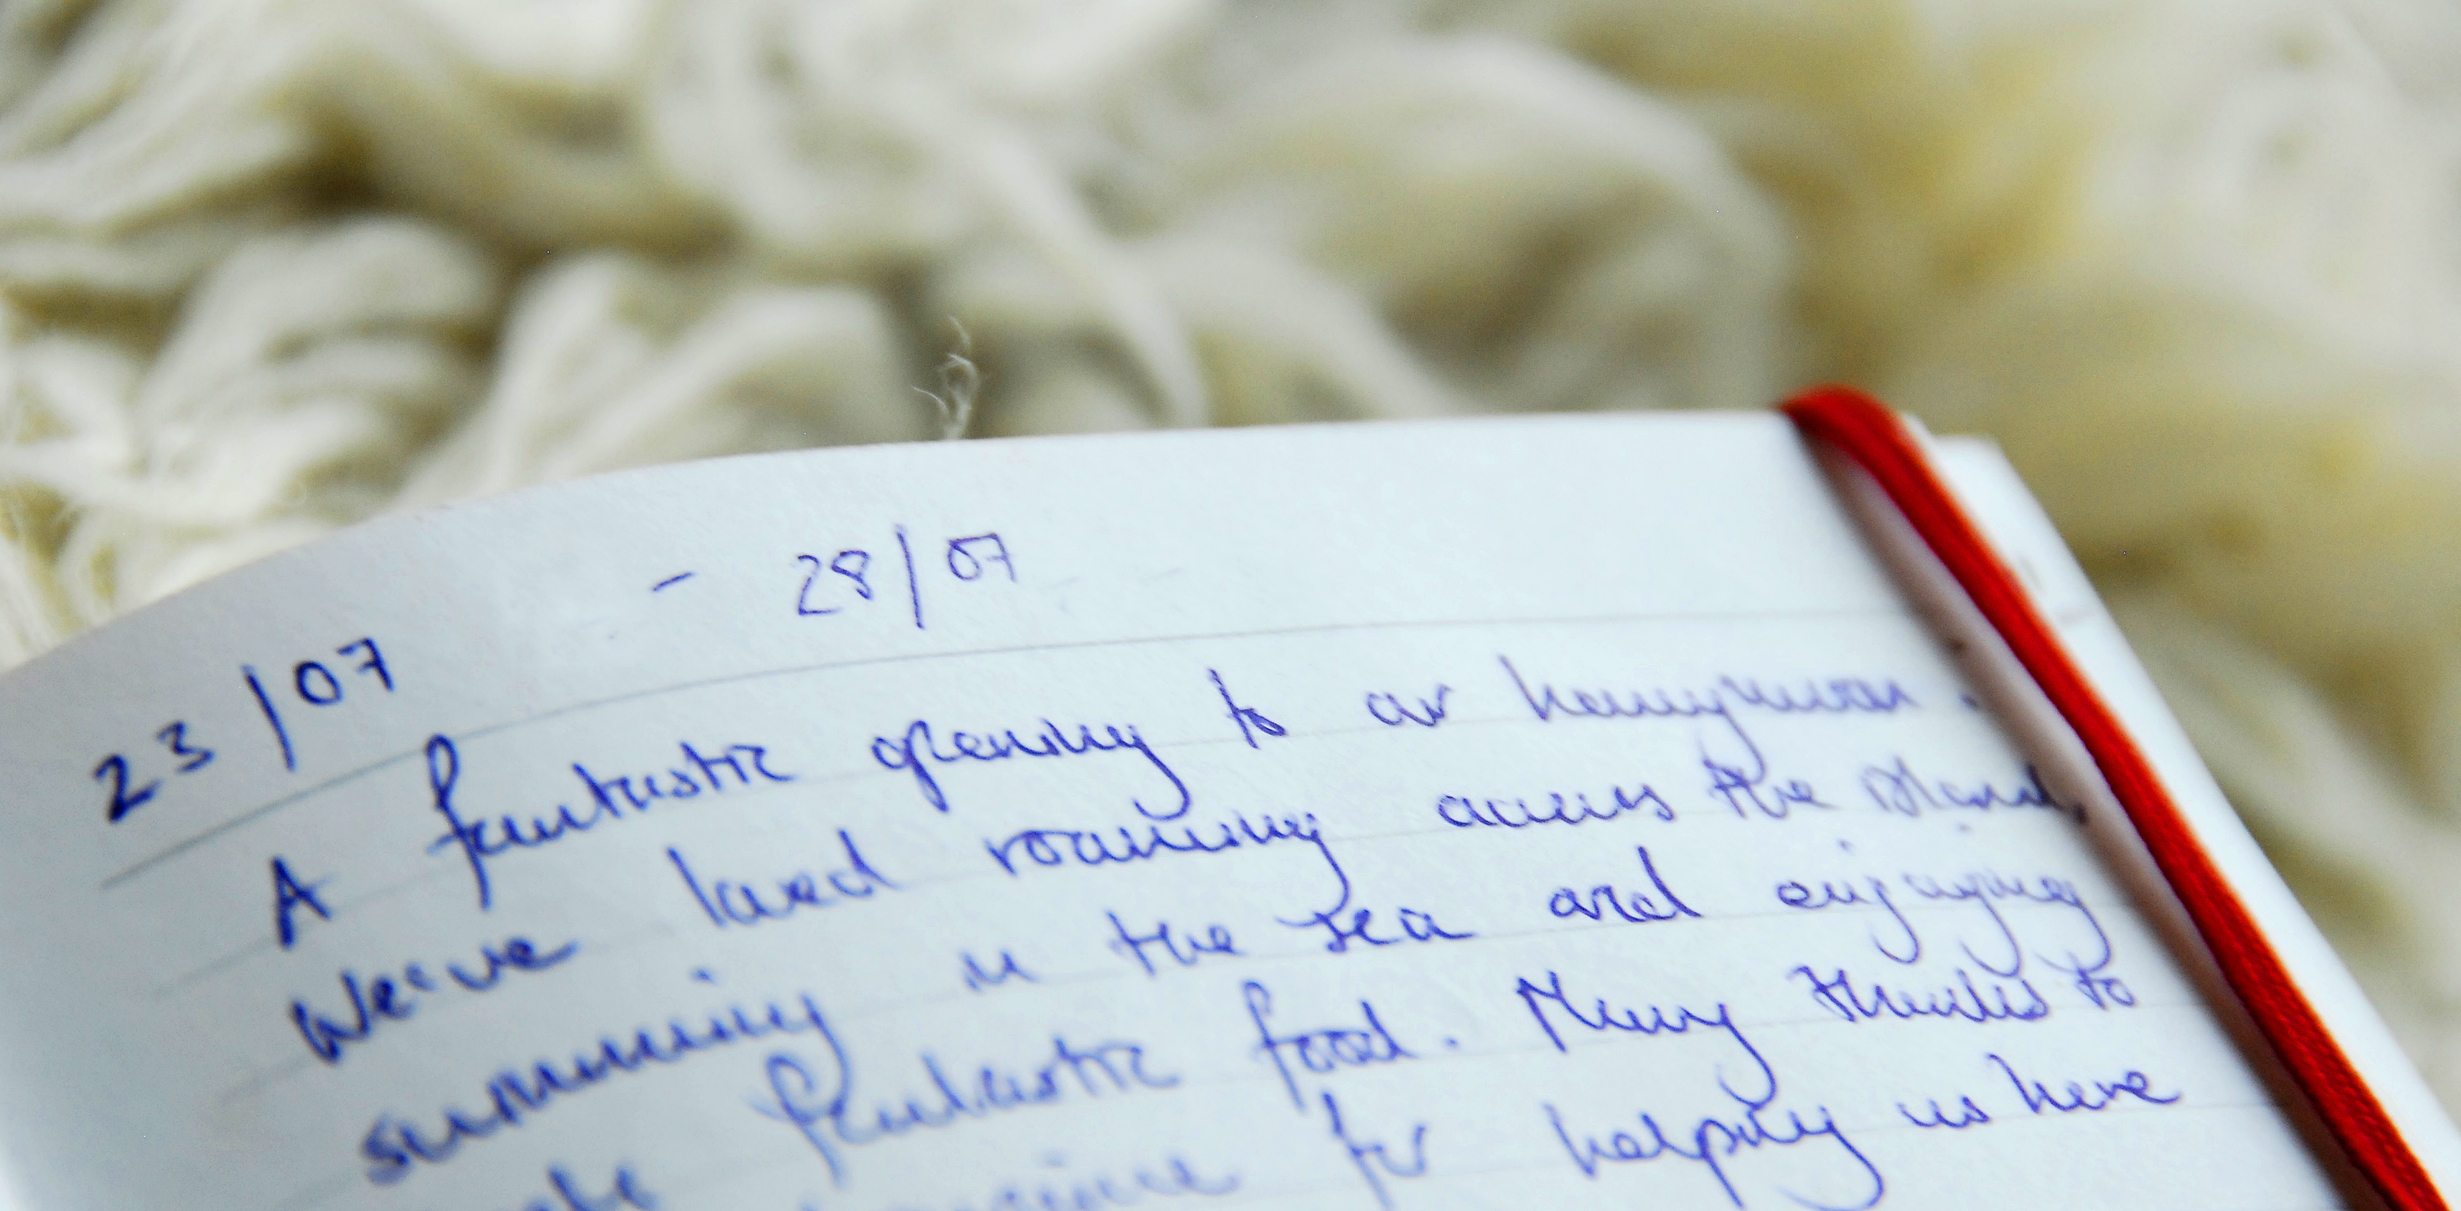 23/07 - 28/07
A fantastic opening to our honeymoon.
We've loved roaming across the island,
swimming in the sea and enjoying
fantastic food. Many thanks to
for helping us here